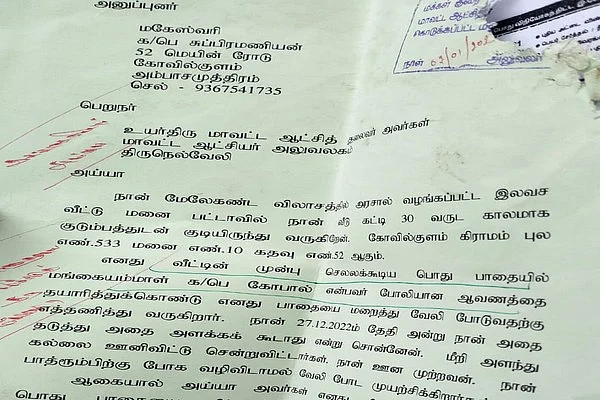 அனுப்புனர்
மகேஸ்வரி
க/பெ சுப்பிரமணியன்
52 மெயின் ரோடு
கோவில்குளம்
அம்பாசமுத்திரம்
செல் - 9367541735
மக்கள்
மாவட்ட ஆட்சி
கொடுக்கப்பட்ட
நாள் 02/01/202
அலுவலர்
பெறுநர்
உயர்திரு மாவட்ட ஆட்சித் தலைவர் அவர்கள்
மாவட்ட ஆட்சியர் அலுவலகம்
திருநெல்வேலி
அய்யா
நான் மேலேகண்ட விலாசத்தில் அரசால் வழங்கப்பட்ட இலவச
வீட்டு மனை பட்டாவில் நான் வீடு கட்டி 30 வருட காலமாக
குடும்பத்துடன் குடியிருந்து வருகிறேன். கோவில்குளம் கிராமம் புல
எண்.533 மனை எண்.10 கதவு எண்.52 ஆகும்.
எனது வீட்டின் முன்பு செல்லக்கூடிய பொது பாதையில்
மங்கையம்மாள் க/பெ கோபால் என்பவர் போலியான ஆவணத்தை
தயாரித்துக்கொண்டு எனது பாதையை மறைத்து வேலி போடுவதற்கு
எத்தணித்து வருகிறார். நான் 27.12.2022ம் தேதி அன்று நான் அதை
தடுத்து அதை அளக்கக் கூடாது என்று சொன்னேன். மீறி அளந்து
கல்லை ஊனிவிட்டு சென்றுவிட்டார்கள். நான் ஊன முற்றவன். நான்
பாத்ரூம்பிற்கு போக வழிவிடாமல் வேலி போட முயற்சிக்கிறார்கள்
ஆகையால் அய்யா அவர்கள் எனது
பொது பாதையை